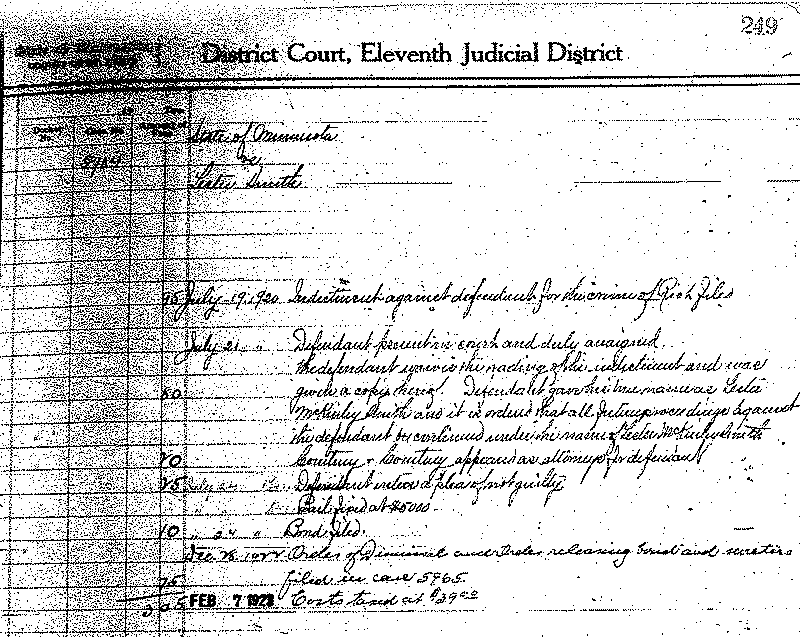 249
District Court, Eleventh Judicial District
State of Minnesota
vs.
Lester Smith
July 19, 1920 Indictment against defendant for the crime of Riot filed
July 21 " Defendant present in court and duly arraigned.
The defendant waives the reading of the indictment and was
given a copy hereof. Defendant gave his true name as Lester
McKinley Smith and it is ordered that all future proceedings against
the defendant be continued under the name of Lester McKinley Smith
20 Courtney & Courtney appeared as attorneys for defendant
25 Defendant entered a plea of not guilty
Bail fixed at $5000.
10 " 24 " Bond filed.
Dec 28 1922 Order of Dismissal and Order releasing bond and sureties
75 filed in case 5765.
FEB 7 1923 Costs taxed at $39